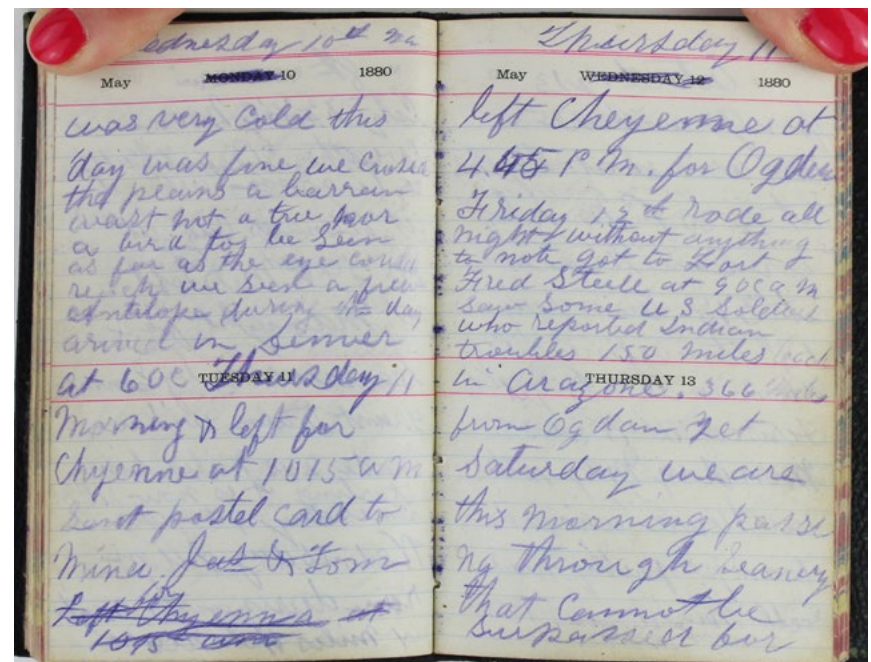 Wednesday 10th Ma
May MONDAY 10 1880
was very cold this
day was fine we Crosed
the peains a barran
wast not a tree nor
a bird to be Seen
as far as the eye could
reach we Seen a few
antilope during the day
arived in Denver
at 6 OC Thursday 11
TUESDAY 11
Morning & left for
Chyenne at 10 15 a m
Sent postel card to
Mina, Jas & Tom
Left Chyenna at
10 15 am
Thursday 11
May WEDNESDAY 12 1880
left Cheyenne at
4 45 P M. for Ogden
Friday 12th rode all
night without anything
to note got to Fort
Fred Steele at 9 OC a m
Saw Some U S Soldiers
who reported Indian
troubles 150 miles
in Arazone. 366 miles
THURSDAY 13
from Ogdan yet
Saturday we are
this morning passi
ng through Seanery
that Cannot be
Surpassed for